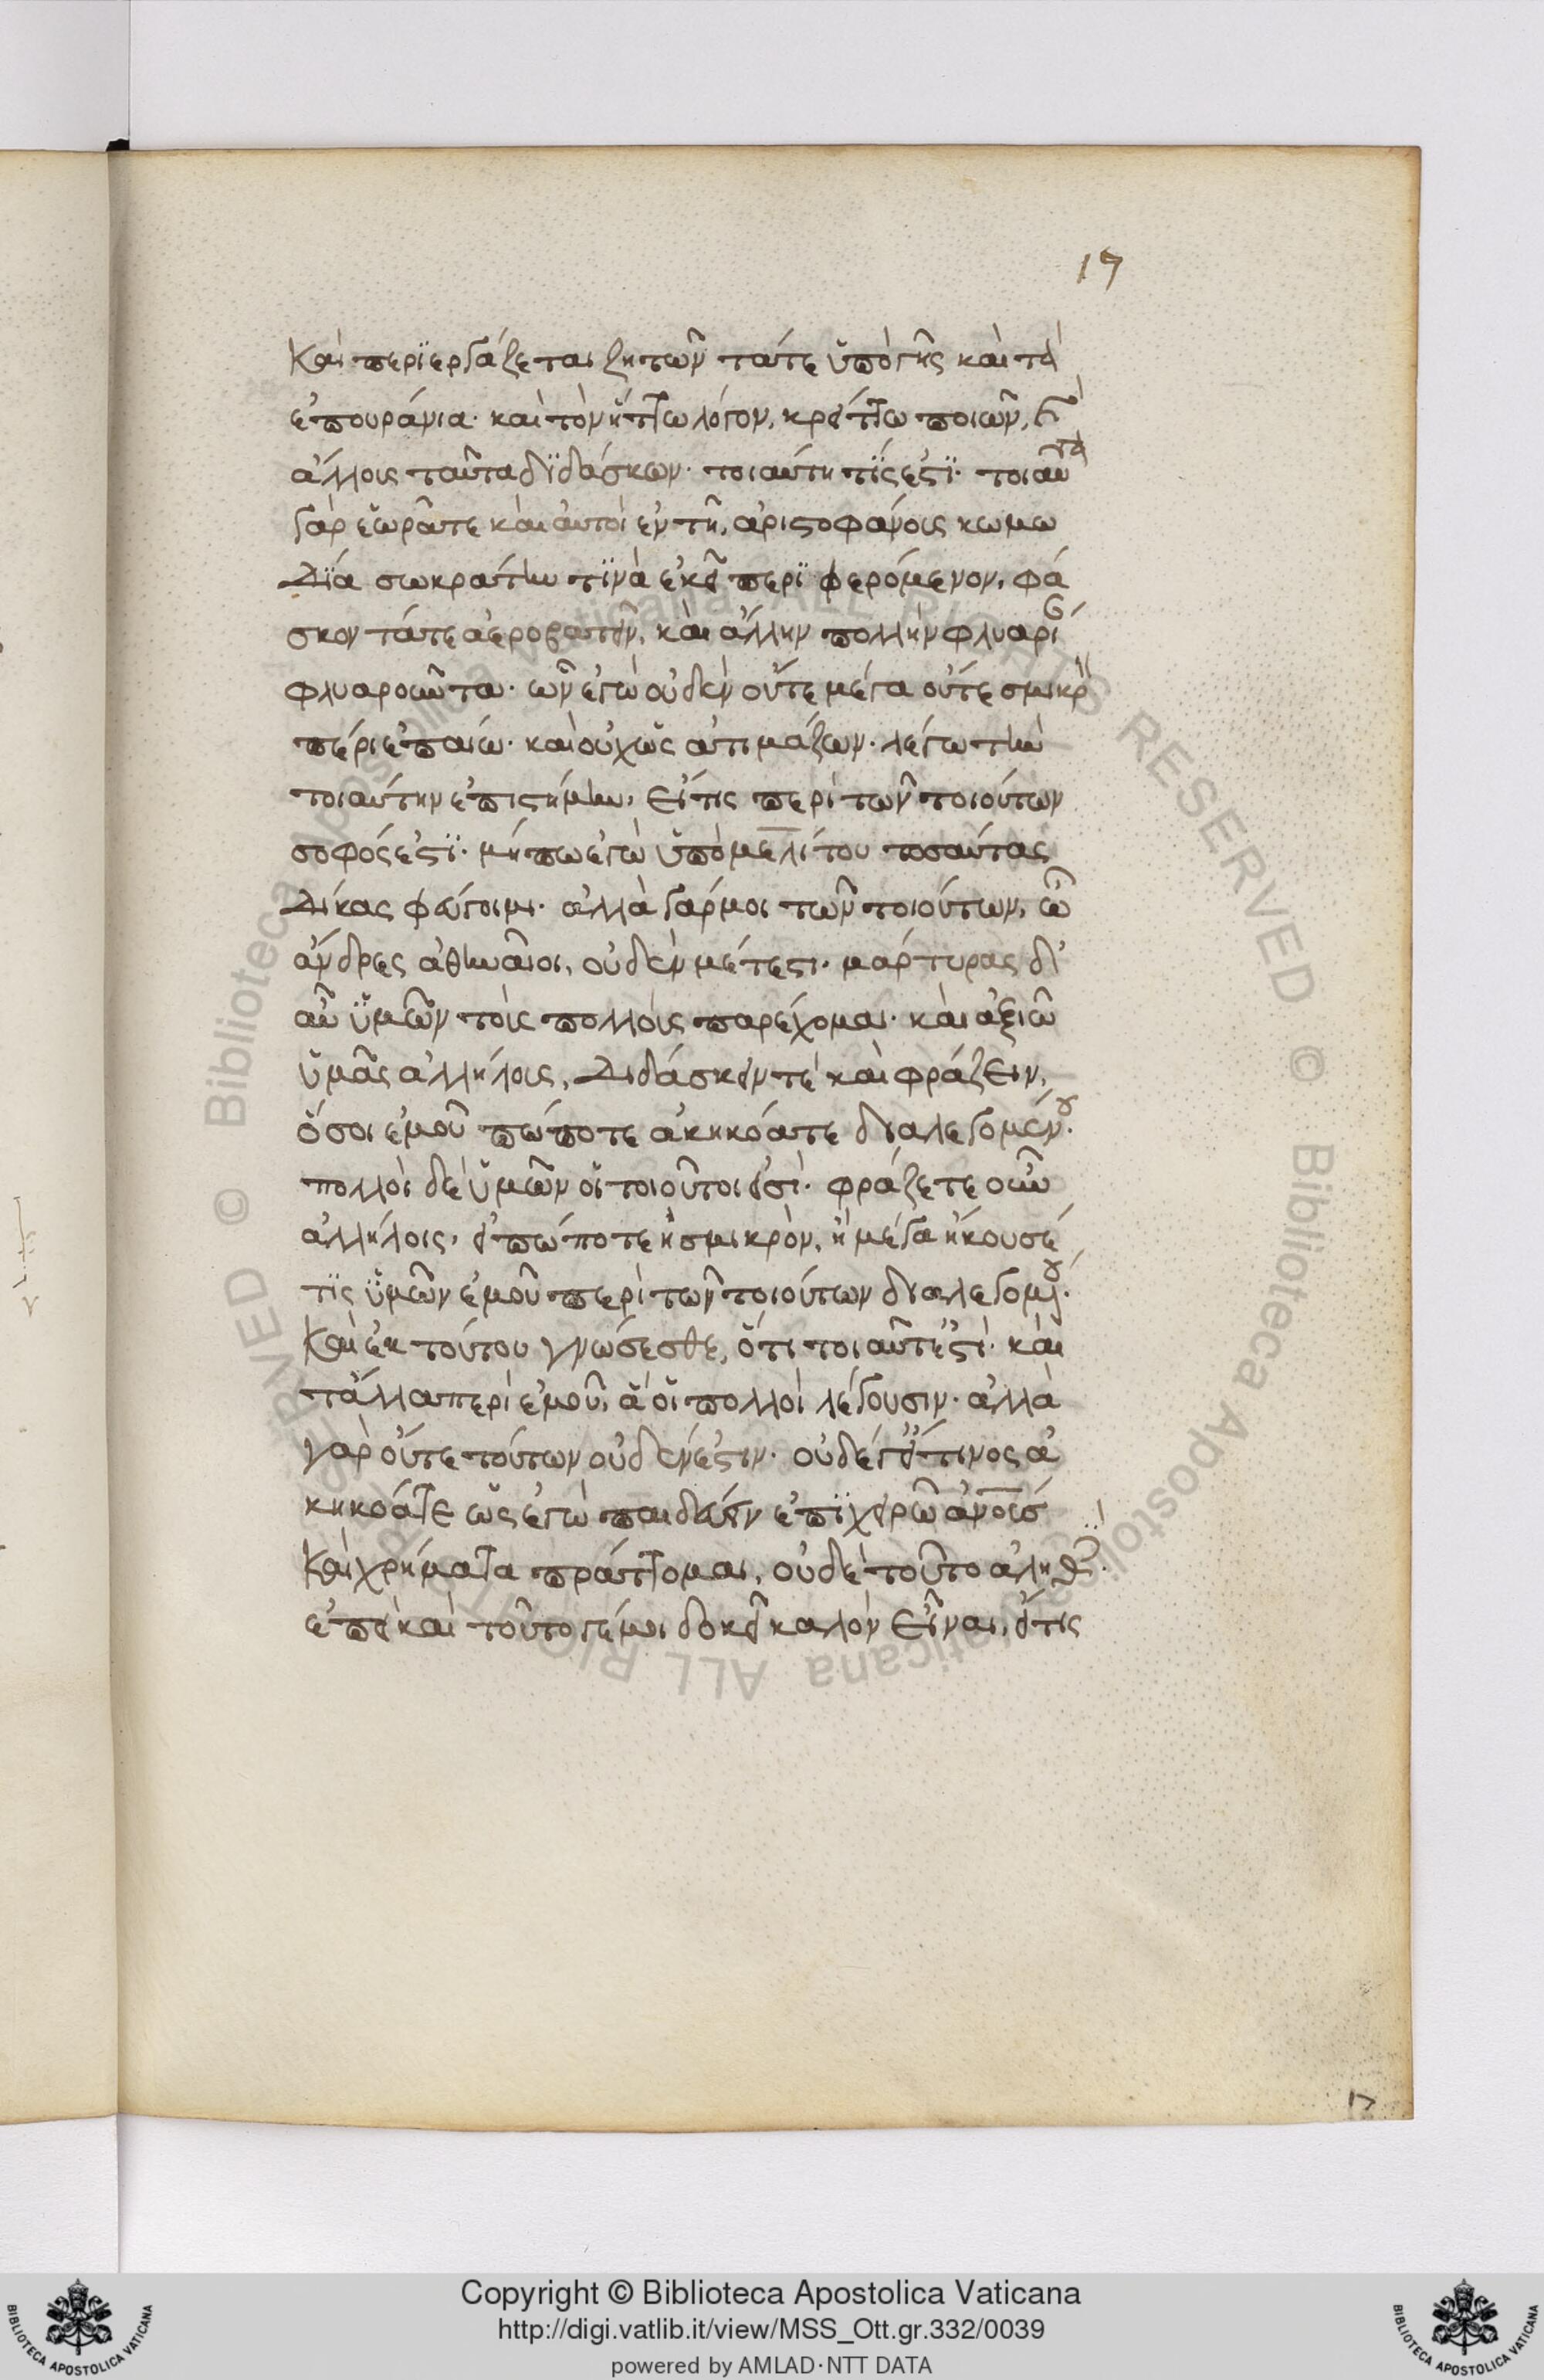 17
Καὶ περϊεργάζεται ζητῶν τά τε ὑπὸ γῆς καὶ τὰ
ἐπουράνια· καὶ τὸν ἥττω λόγον, κρείττω ποιῶν, καὶ
ἄλλοις ταῦτα δϊδάσκων· τοιαύτη τΐς ἐστΐ· τοιαῦτα
γὰρ ἑωρᾶτε καὶ αὐτοὶ ἐν τῆ, ἀριστοφάνοις κωμω
Δϊα σωκράτην τϊνὰ ἐκεῖ περϊ φερόμενον, φά
σκον τά τε ἀεροβατεῖν, καὶ ἄλλην πολλὴν φλυαρί
φλυαροῦντα· ὧν ἐγὼ οὐδὲν οὔτε μέγα οὔτε σμικρὸν
πέρι ἐπαίω· καὶ οὐχ ὡς ἀτιμάζων· λέγω τὴν
τοιαύτην ἐπιστήμην, εἴ τις περὶ τῶν τοιούτων
σοφός ἐστϊ· μή πω ἐγὼ ὑπὸ μελίτου τοσαύτας
Δίκας φύγοιμι· ἀλλὰ γάρ μοι τῶν τοιούτων, ὦ
ἄνδρες ἀθηναῖοι, οὐδὲν μέτεστι· μάρτυρας δ'
αὖ ὑμῶν τοὶς πολλοὶς παρέχομαι· καὶ ἀξιῶ
ὑμᾶς ἀλλήλοις, Διδάσκειν τέ καὶ φράζειν,
ὅσοι ἐμοῦ πώποτε ἀκηκόατε διαλεγομένου·
πολλοὶ δὲ ὑμῶν οἱ τοιοῦτοι εἰσί· φράζετε οὖν
ἀλλήλοις, εἰ πώποτε ἢ σμικρὸν, ἢ μέγα ἤκουσέ
τϊς ὑμῶν ἐμοῦ περὶ τῶν τοιούτων διαλεγομένου·
Καὶ ἐκ τούτου γνώσεσθε, ὅτι τοιαῦτ' ἐστὶ· καὶ
τἄλλα περὶ ἐμοῦ, ἃ οἱ πολλοὶ λέγουσιν· ἀλλὰ
γὰρ οὔτε τούτων οὐδέν ἐστιν· οὐδέ γ' εἴ τινος ἀ
κηκόατε ὡς ἐγὼ παιδεύειν ἐπϊχειρῶ ἀνοις
Καὶ χρήματα πράττομαι, οὐδὲ τοῦτο ἀληθὲς·
ἐπεὶ καὶ τοῦτο γέ μοι δοκεῖ καλὸν εἶναι, εἴ τις
17
Copyright © Biblioteca Apostolica Vaticana
http://digi.vatlib.it/view/MSS_Ott.gr.332/0039
powered by AMLAD·NTT DATA